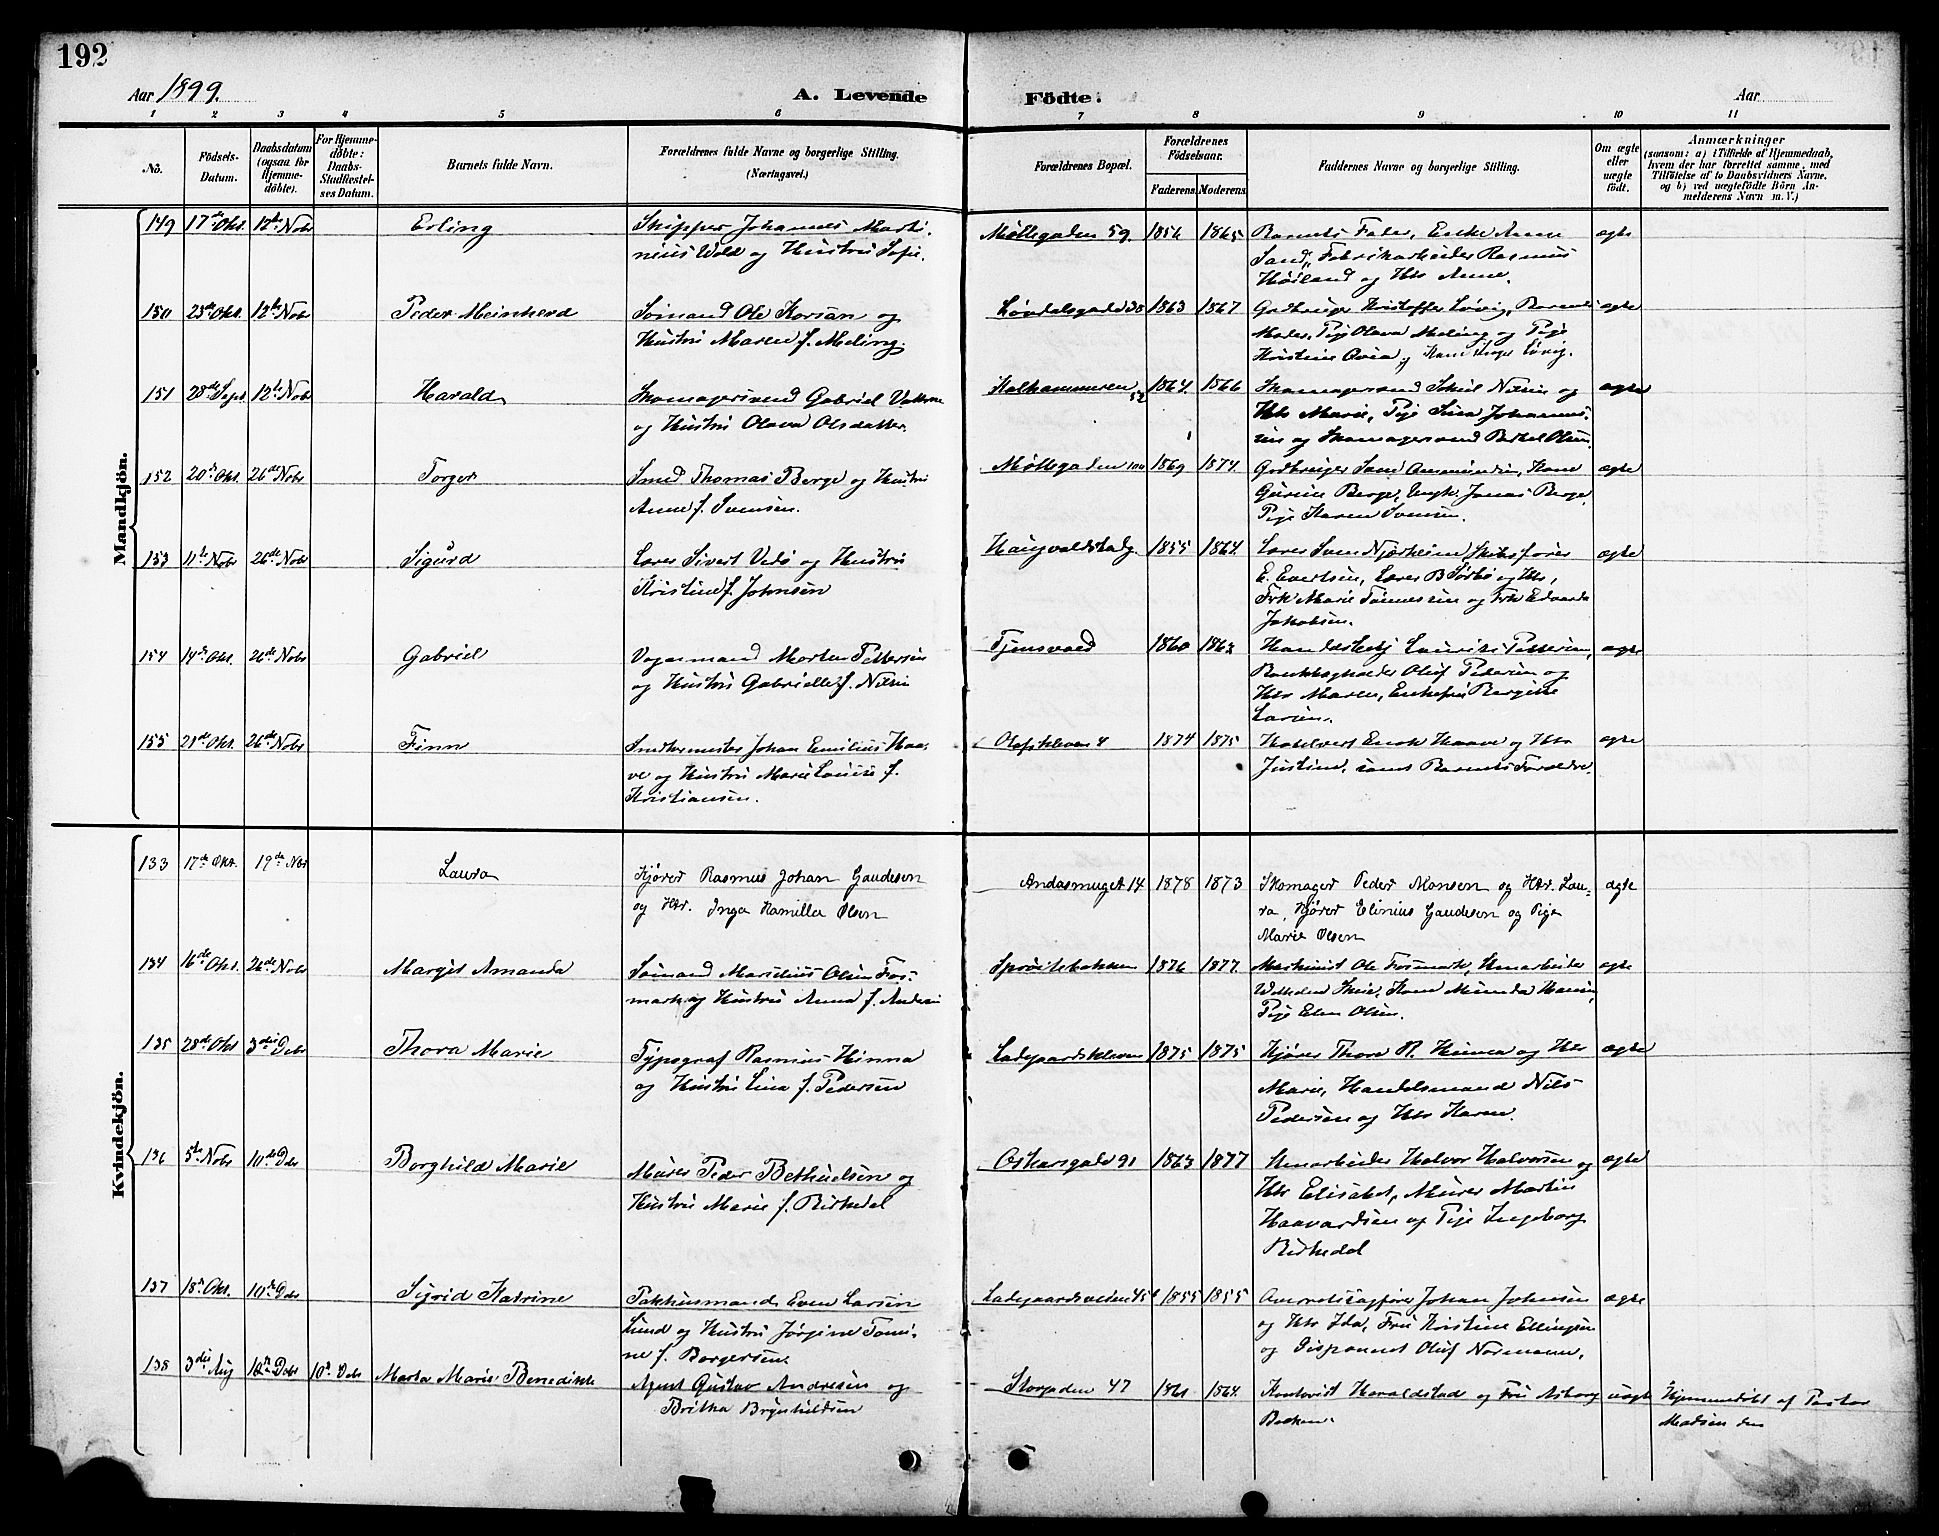 192
Aar 1899.
A. Levende Födte.
Aar
1 2 3 4 5 6 7 8 9 10 11
No.
Födsels-Datum.
Daabsdatum (ogsaa for Hjemme-döbte).
For Hjemme-döbte: Daabs-Stadfæstel-ses Datum.
Barnets fulde Navn.
Forældrenes fulde Navne og borgerlige Stilling. (Næringsvei.)
Forældrenes Bopæl.
Forældrenes Födselsaar.
Faderens. Moderens.
Faddernes Navne og borgerlige Stilling.
Om ægte eller uægte födt.
Anmærkninger
(saasom: a) i Tilfælde af Hjemmedaab, hvem der har forrettet samme, med Tilföielse af to Daabsvidners Navne, og b) ved uægtefödte Börn Anmelderens Navn m. V.)
Mandkjön.
149 17de Okt. 12te Nobr Erling
Skipper Johannes Marti-
nius Wold og Hustru Sofie.
Møllegaden 59. 1856 1865
Barnets Fader, Enke Anne
Sand, Fabrikarbeider Rasmus
Høiland og Htr Anne.
ægte
150 23de Okt. 12te Nobr Peder Meinhard
Sømand Ole Korsan og
Hustru Maren f. Meling.
Løvdalsgade 38 1863 1867
Gadbruger Kristoffer Løvig, Barnets
Moder, Pige Olava Meling og Pige
Kristine
ægte
151 28de Sept. 12te Nobr Harald
Skomagersvend Gabriel
og Hustru Olava Olsdatter.
Kalhammeren 52 1864. 1866
Skomagersvend
Htr Marie, Pige Sina Johannes-
sen og Skomagersvend Bertel Olsen.
ægte
152 20de Okt. 26de Nobr Torger
Smed Thomas Berge og Hustru
Anne f. Svensen.
Møllegaden 1869 1874.
Gurine Berge, Jonas Berge,
Pige Karen Svensen.
ægte
153 11te Nobr 26de Nobr Sigurd
Lærer Sivert Vedø og Hustru
Kristine f. Johnsen
Haugvaldstadg. 1855 1864.
Lærer Sven Njærheim, Skibsfører
E. Evertsen, Lærer B Sørbø og Htr,
Frk Marie Tønnessen og Frk Edvarda
Jakobsen.
ægte
154 14de Okt. 26de Nobr Gabriel
Vognmand Morten Pettersen
og Hustru Gabrielle f. Nilsen
Tjensvold 1860 1862
Pettersen,
Oluf Pedersen og
Htr Maren, Enkefru Bergitte
Larsen.
ægte
155 21de Okt. 26de Nobr Finn
Snedkermester Johan Emilius Haa-
ve og Hustru Marie Louise f.
Kristiansen.
Olafskleven 4 1874 1875
Hotelvert Enok Haave og Htr
Justine, samt Barnets Forældre.
ægte
Kvindekjön.
133 17de Okt. 19de Nbr Laura
Kjører Rasmus Johan Gaudesen
og Htr. Inga Kamilla Olsen
Andasmuget 14 1878 1873
Skomager Peder Monsen og Htr. Lau-
ra, Kjører Elinius Gaudesen og Pige
Marie Olsen
ægte
134 16de Okt. 26de Nobr Margit Amanda
Sømand Marselius Olsen Fos-
mark og Hustru Anna f. Andersen
Sprøitebakken 1876 1877.
Maskinist Ole Fosmark, Stenarbeider
Wilhelm Skeie, Kone Munda Hansen,
Pige Elen Olsen.
ægte
135 28de Okt 3die Debr Thora Marie
Typograf Rasmus Hinna
og Hustru Lina f. Pedersen
Ladegaardskleven 1875 1875
Kjører Thore R. Hinna og Htr
Marie, Handelsmand Nils
Pedersen og Htr Karen.
ægte
136 5te Nobr 10de Debr Borghild Marie
Murer Peder Bethuelsen og
Hustru Marie f. Birkedal
Oskarsgade 91 1863 1877
Stenarbeider Halvor Halvorsen og
Htr Elisabet, Murer Martin
Haavardsen og Pige Ingeborg
Birkedal
ægte
137 18de Okt. 10de Debr Sigrid Katrine
Pakhusmand Even Larsen
Lund og Hustru Jørgine Tomi-
ne f. Borgersen.
Ladegaardsveien 45 1855 1855
Overretssagfører Johan Johnsen
og Htr Ida, Fru Kristine Ellingsen
og Disponent Oluf Normann,
ægte
138 3die Aug 10de Debr 10de Debr Marta Marie Benedikte
Agent Gustav Andresen og
Britha Brynhildsen
Storgaden 47 1861 1864.
Kontorist Haraldstad og Fru Asborg
Becken.
uægte
Hjemmedøbt af Pastor
Madsen den